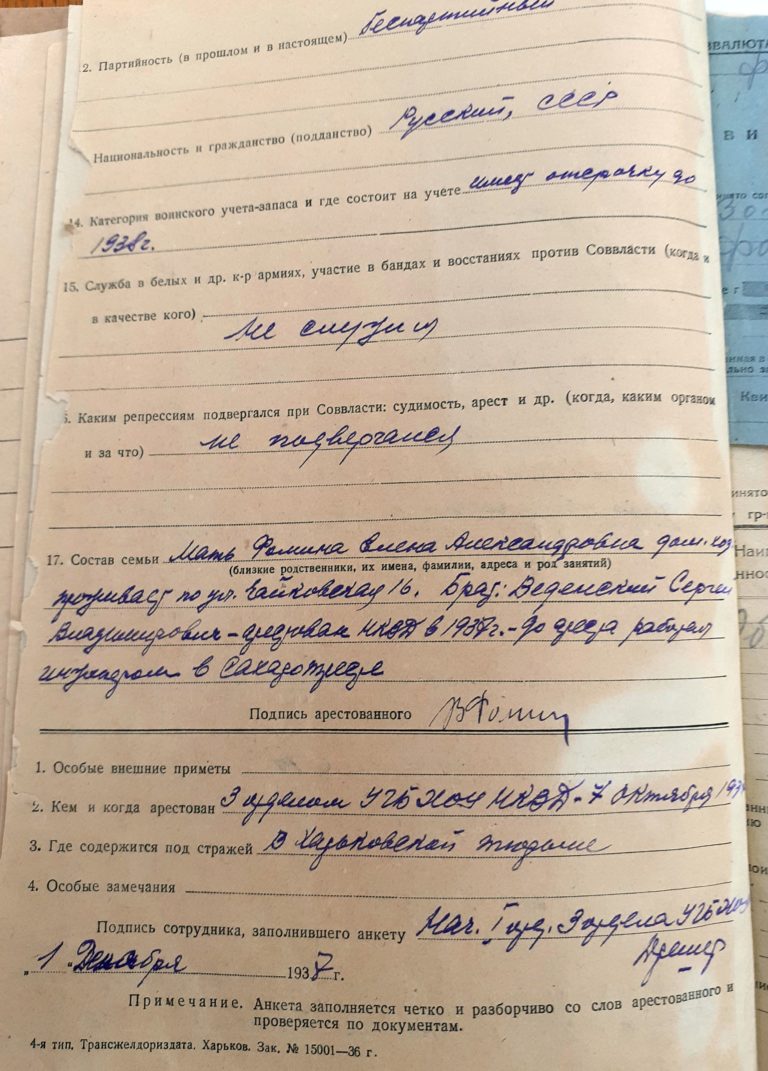 2. Партийность (в прошлом и в настоящем) Беспартийный
Национальность и гражданство (подданство) Русский, СССР
14. Категория воинского учета-запаса и где состоит на учете имеет отсрочку до
1938г.
15. Служба в белых и др. к-р армиях, участие в бандах и восстаниях против Соввласти (когда и
в качестве кого)
не служил
6. Каким репрессиям подвергался при Соввласти: судимость, арест и др. (когда, каким органом
и за что) не подвергался
17. Состав семьи Мать Фомина Елена Александровна дом. хоз
(близкие родственники, их имена, фамилии, адреса и род занятий)
проживает по ул. Чайковская 16. Брат: Веденский Сергей
Владимирович – арестован НКВД в 1937г. – до ареста работал
инженером в Сахаротресте
Подпись арестованного ВФомин
1. Особые внешние приметы
2. Кем и когда арестован 3 отделом УГБ ХОУ НКВД – 7 октября 193
3. Где содержится под стражей В Харьковской тюрьме
4. Особые замечания
Подпись сотрудника, заполнившего анкету Нач. I отд. 3 отдела УГБ ХОУ
„ 1 " Декабря 1937 г.
Примечание. Анкета заполняется четко и разборчиво со слов арестованного и
проверяется по документам.
4-я тип. Трансжелдориздата. Харьков. Зак. № 15001—36 г.